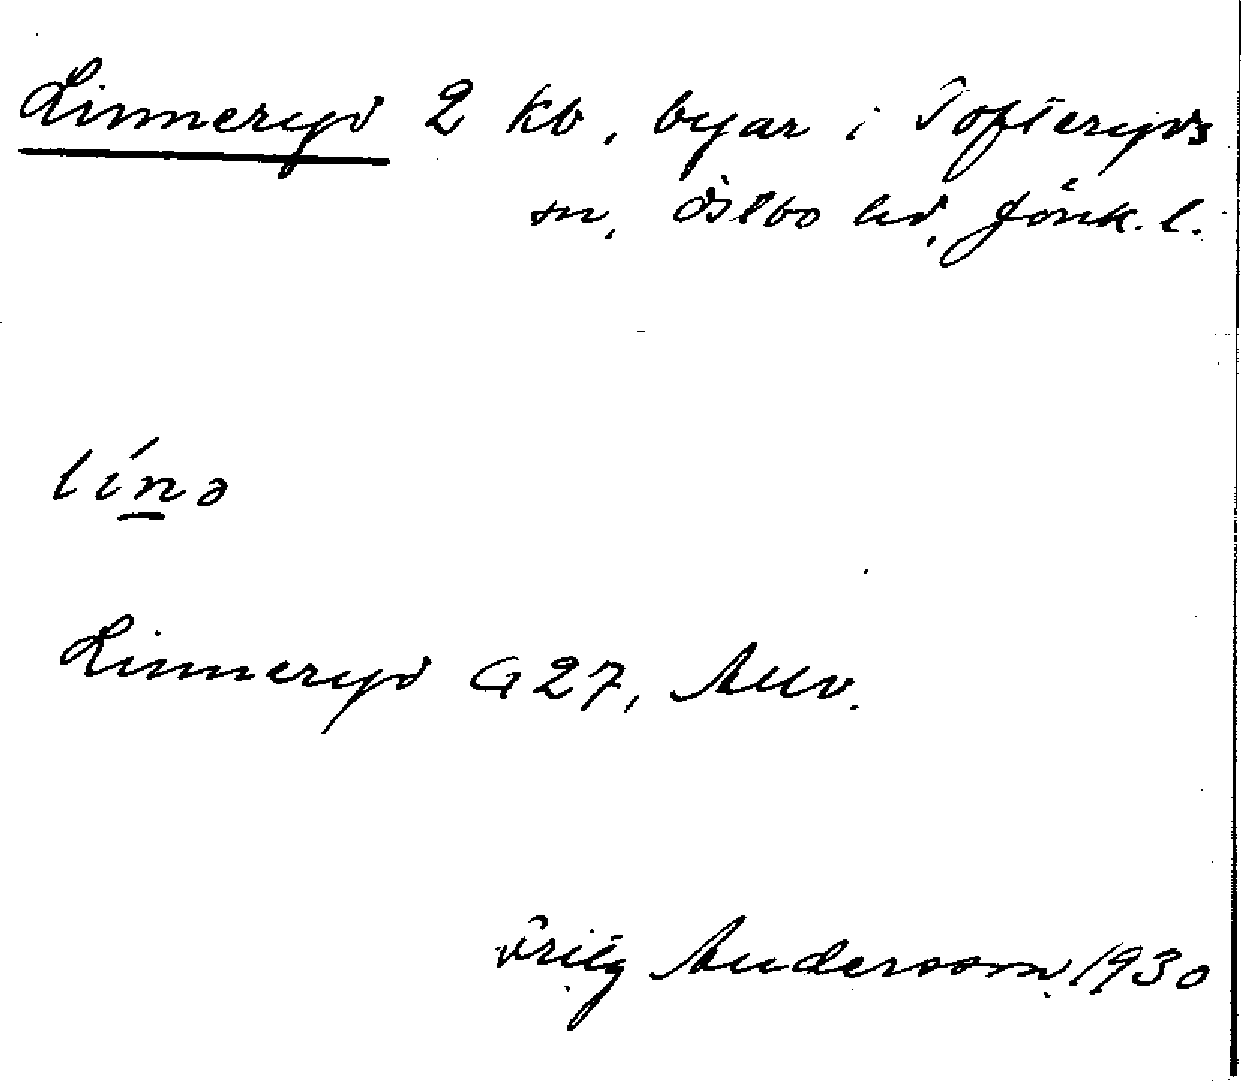 Linneryd 2 kb, byar i Tofteryds
sn, Östbo hd, Jönk. l.
línə
Linneryd G 27, Allv.
Fritz Anderson 1930